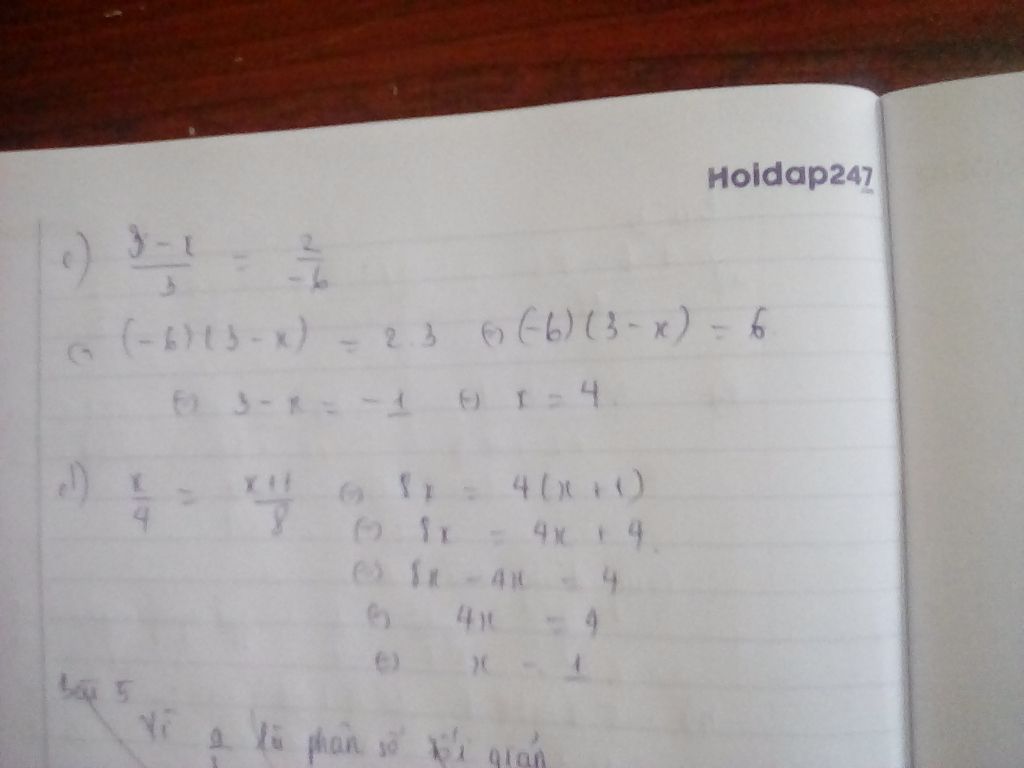 Hoidap247
c) 3-x/3 = 2/-6
⇔ (-6)(3-x) = 2.3 ⇔ (-6)(3-x) = 6
⇔ 3-x = -1 ⇔ x = 4.
d) x/4 = x+1/8 ⇔ 8x = 4(x+1)
⇔ 8x = 4x + 4.
⇔ 8x - 4x = 4
⇔ 4x = 4
⇔ x = 1
Bài 5
Vì a là phân số tối giản